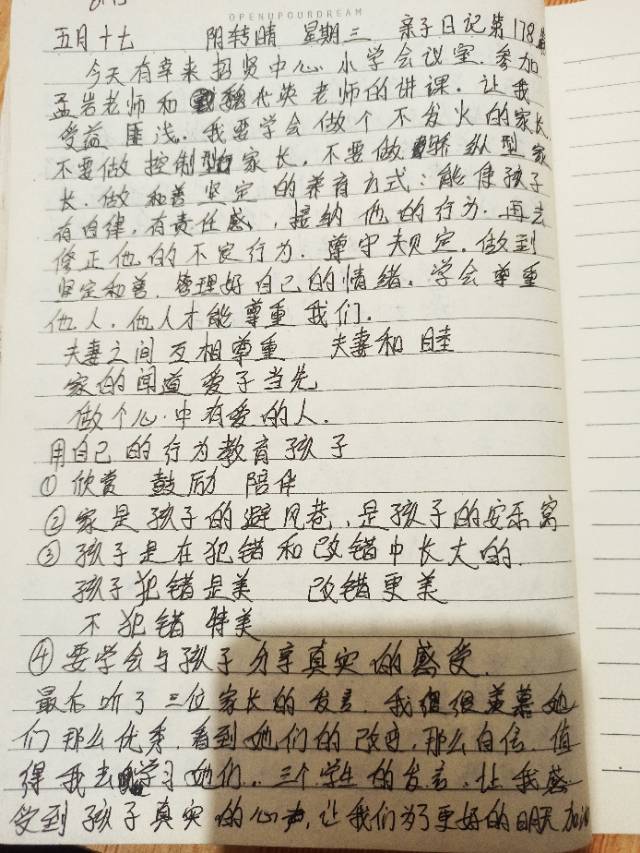 OPENUPOURDREAM
五月十七 阴转晴 星期三 亲子日记第178篇
今天有幸来招贤中心小学会议室.参加
孟岩老师和魏代英老师的讲课.让我
受益匪浅.我要学会做个不发火的家长
不要做控制型家长.不要做骄纵型家
长.做和善坚定的养育方式:能使孩子
有自律,有责任感,接纳他的行为.再去
修正他的不良行为.尊守规定.做到
坚定和善.管理好自己的情绪.学会尊重
他人.他人才能尊重我们.
夫妻之间互相尊重 夫妻和睦
家的闻道 爱子当先
做个心中有爱的人.
用自己的行为教育孩子
①欣赏 鼓励 陪伴
②家是孩子的避风巷、是孩子的安乐窝
③孩子是在犯错和改错中长大的.
孩子犯错是美 改错更美
不犯错特美
④要学会与孩子分享真实的感受.
最后听了三位家长的发言.我很羡慕她
们那么优秀.看到她们的改进.那么自信.值
得我去学习她们.三个学生的发言.让我感
受到孩子真实的心声.让我们为了更好的明天加油